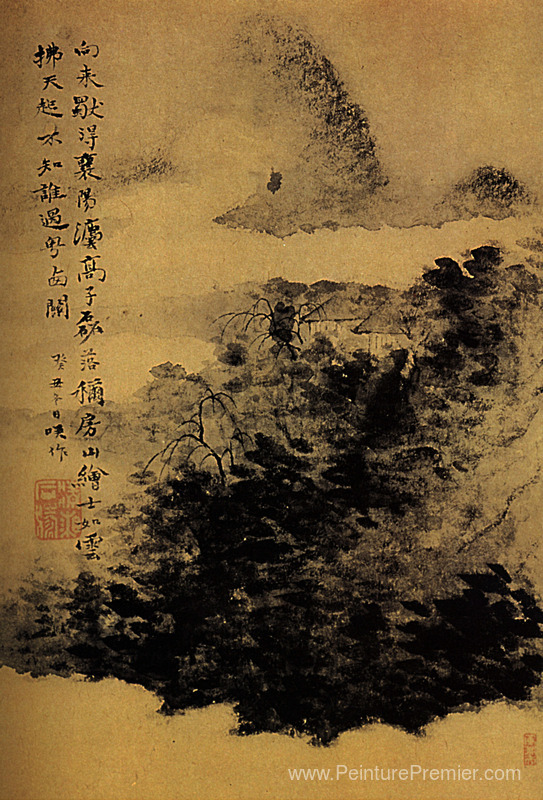 向来得襄陽高子磊落稱房山繪士如雲
拂天起不知誰過粤西關
癸丑午日咲作
www.PeinturePremier.com